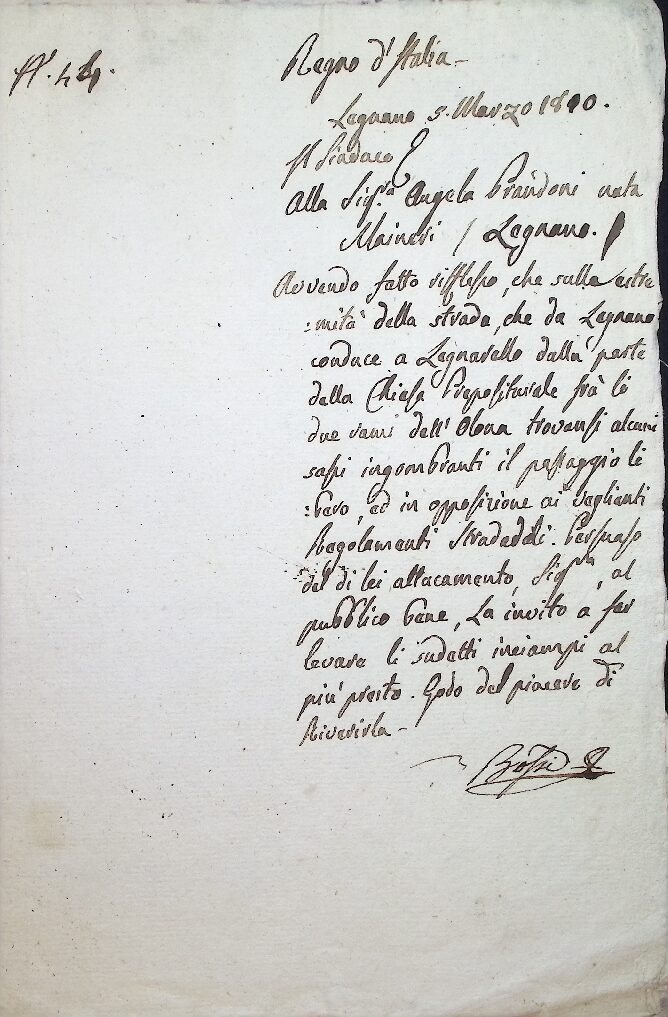 N.° 44.
Regno d'Italia -
Legnano 5. Marzo 1810.
Il Sindaco
Alla Sig.ra Angela Prandoni nata
Maineri / Legnano.
Avvendo fatto riflesso, che sulla estre
:mità della strada, che da Legnano
conduce a Legnarello dalla parte
della Chiesa Prepositurale frà li
due rami dell'Olona trovansi alcuni
sassi ingombranti il passaggio li
:bero, ed in opposizione ai veglianti
Regolamenti Stradali. Persuaso
del di lei attacamento, Sig.ra, al
pubblico bene, La invito a far
levare li sudetti inciampi al
più presto. Godo del piacere di
Riverirla -
Bossi